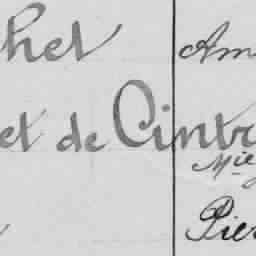 het Am
et de Cintr
Mie
Pier